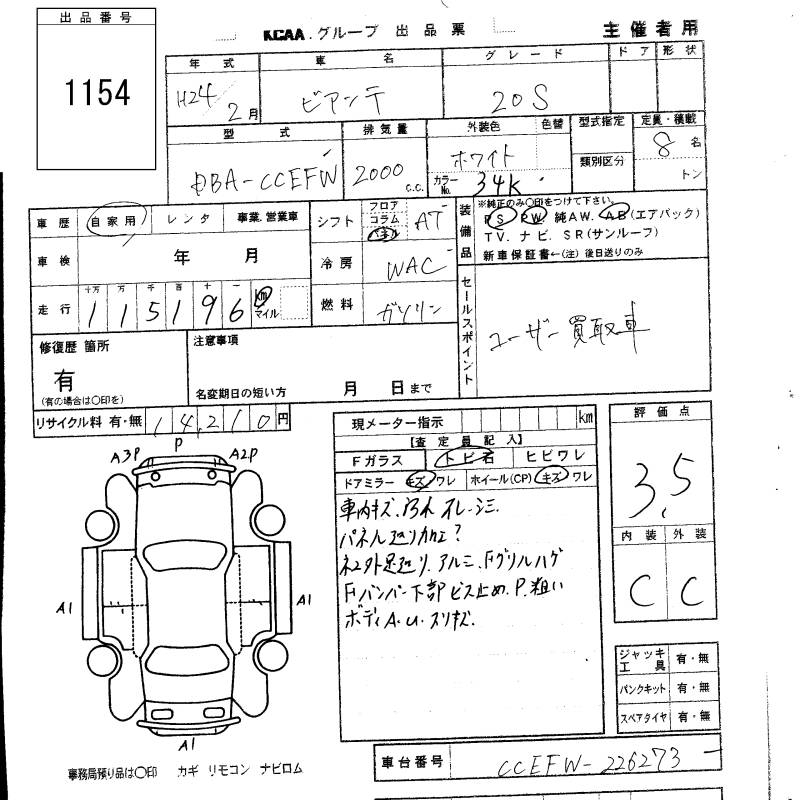 出品番号
1154
KCAA.グループ 出品票 主催者用
年式 車名 グレード ドア 形状
H24/2月 ビアンテ 20S
型式 排気量 外装色 色替 型式指定 定員・積載
DBA-CCEFW 2000 c.c. ホワイト 類別区分 8名
カラーNo. 34K トン
車歴 自家用 レンタ 事業.営業車
シフト フロア コラム パネル AT
装備品 ※純正のみ〇印をつけて下さい。
PS PW 純AW. AB(エアバック)
TV. ナビ. SR(サンルーフ)
新車保証書←(注) 後日送りのみ
車検 年 月
冷房 WAC
走行 十万 万 千 百 十 一
115196 km マイル
燃料 ガソリン
セールスポイント ユーザー買取車
修復歴 箇所
有
(有の場合は〇印を)
注意事項
名変期日の短い方 月 日まで
リサイクル料 有・無 14,210円
現メーター指示 km
【査定員記入】
Fガラス トビ石 ヒビワレ
ドアミラー キズ ワレ ホイール(CP) キズ ワレ
車内キズ.汚れ.スレ.シミ.
パネル辺り加工?
ネコ外足辺り.アルミ.Fグリルハゲ
Fバンパー下部ビス止め.P.粗い
ボディA.U.スリキズ.
評価点
3.5
内装 外装
C C
P
A3P A2P
A1 A1
A1
ジャッキ工具 有・無
パンクキット 有・無
スペアタイヤ 有・無
事務局預り品は〇印 カギ リモコン ナビロム
車台番号 CCEFW-226273